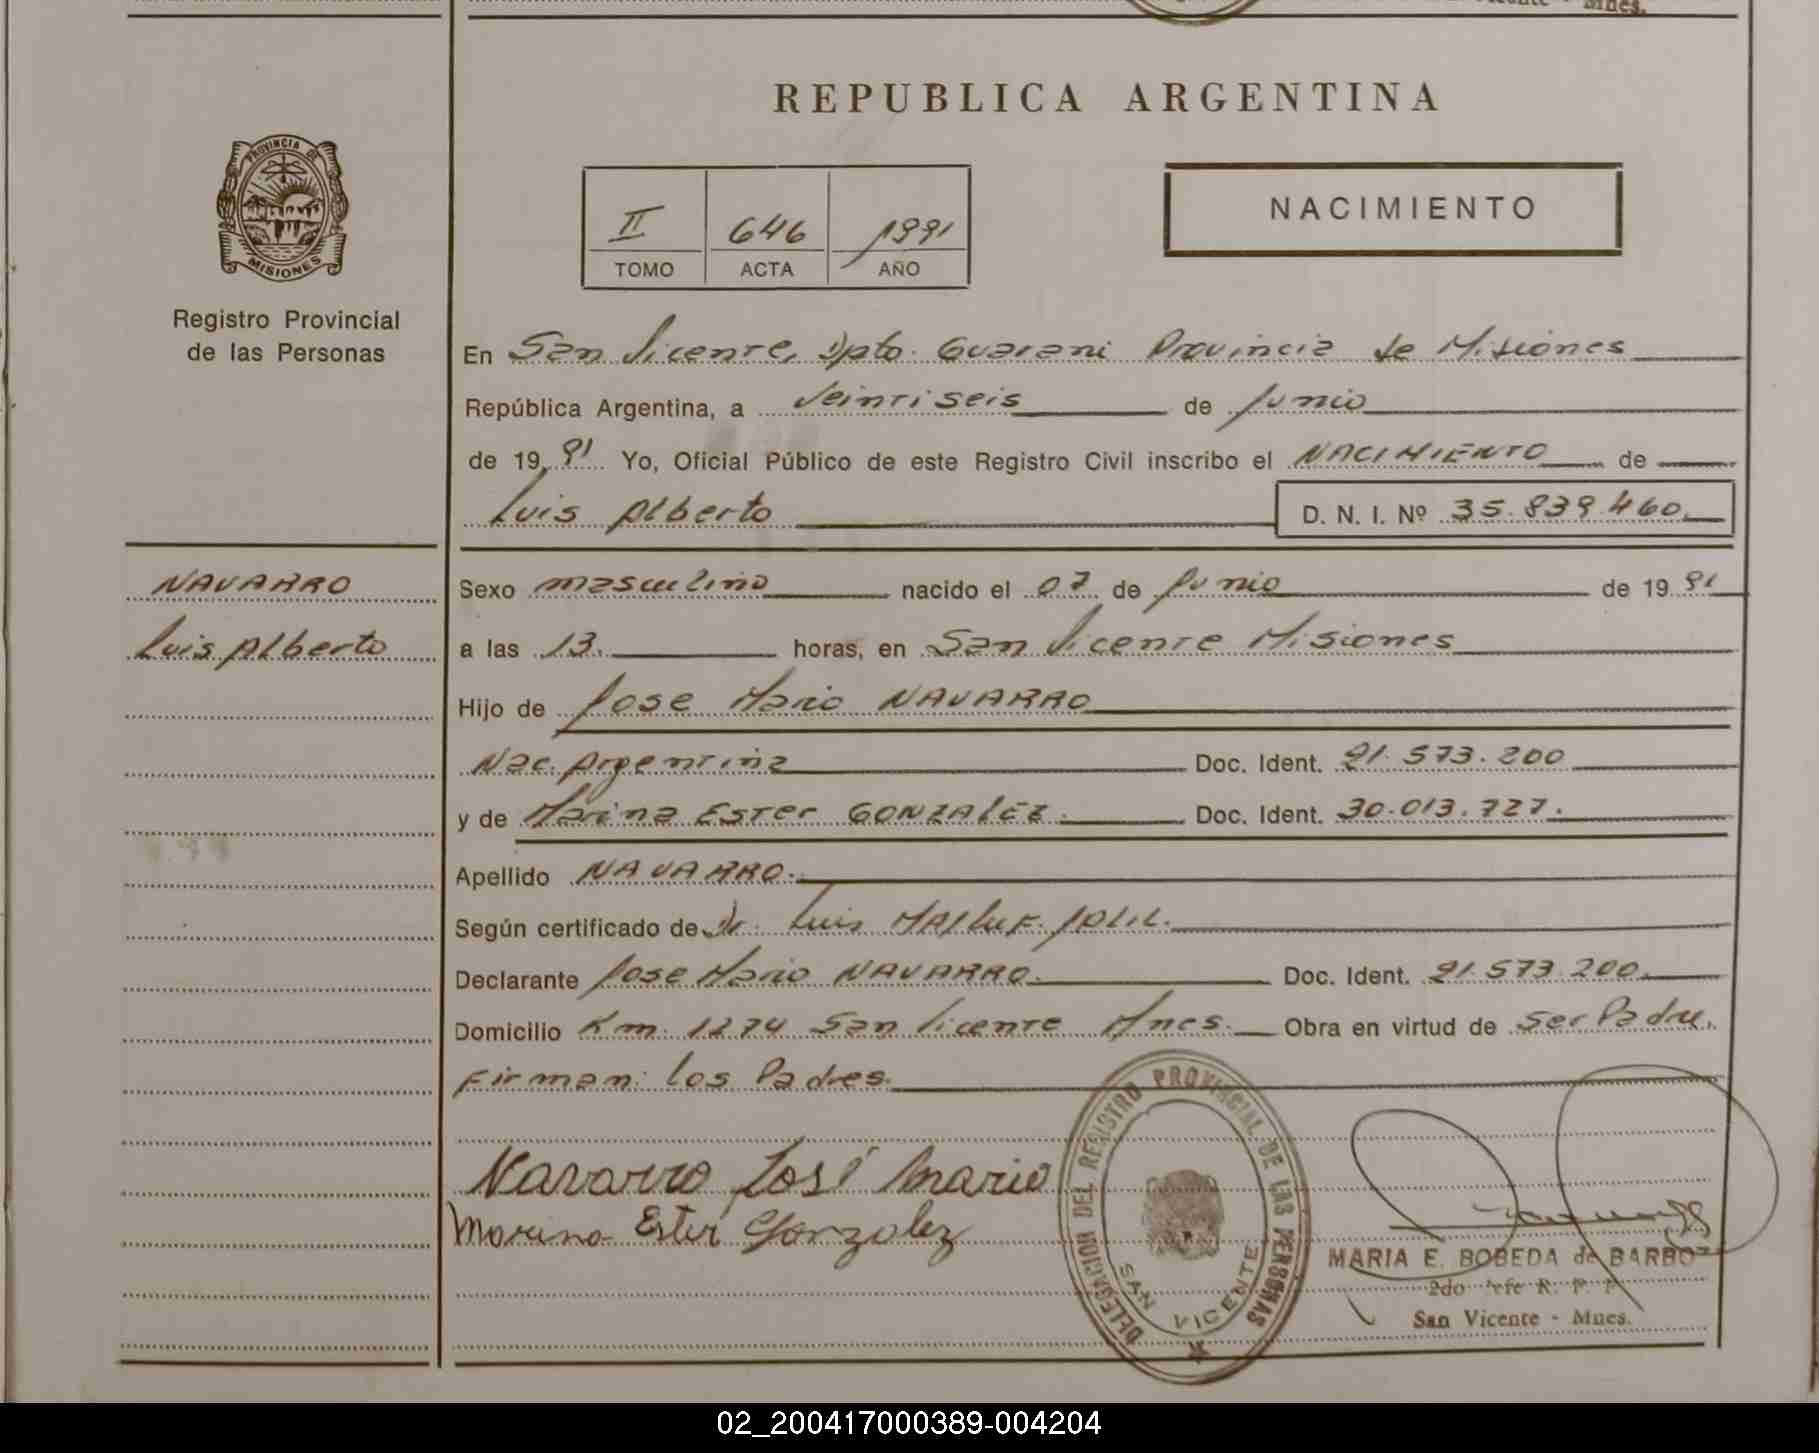 REPUBLICA ARGENTINA
PROVINCIA DE
MISIONES
Registro Provincial
de las Personas
NACIMIENTO
II 646 1991
TOMO ACTA AÑO
En San Vicente, Dpto. Guarani Provincia de Misiones
República Argentina, a Veintiseis de Junio
de 1991 Yo, Oficial Público de este Registro Civil inscribo el NACIMIENTO de
Luis Alberto D. N. I. Nº 35.839.460.
NAVARRO
Luis Alberto
Sexo masculino nacido el 07 de Junio de 1991
a las 13. horas, en San Vicente Misiones
Hijo de Jose Mario NAVARRO
Nac. Argentina Doc. Ident. 21.573.200
y de Marina Ester GONZALEZ. Doc. Ident. 30.013.727.
Apellido NAVARRO.
Según certificado de Dr. Luis
Declarante Jose Mario NAVARRO. Doc. Ident. 21.573.200
Domicilio Km. 1274 San Vicente Mnes. Obra en virtud de Ser Padre.
Firman: los Padres.
Navarro José Mario
Marina Ester Gonzalez
DELEGACION DEL REGISTRO PROVINCIAL DE LAS PERSONAS
SAN VICENTE
MARIA E. BOBEDA de BARBO
2do R. P. P.
San Vicente - Mnes.
02_200417000389-004204